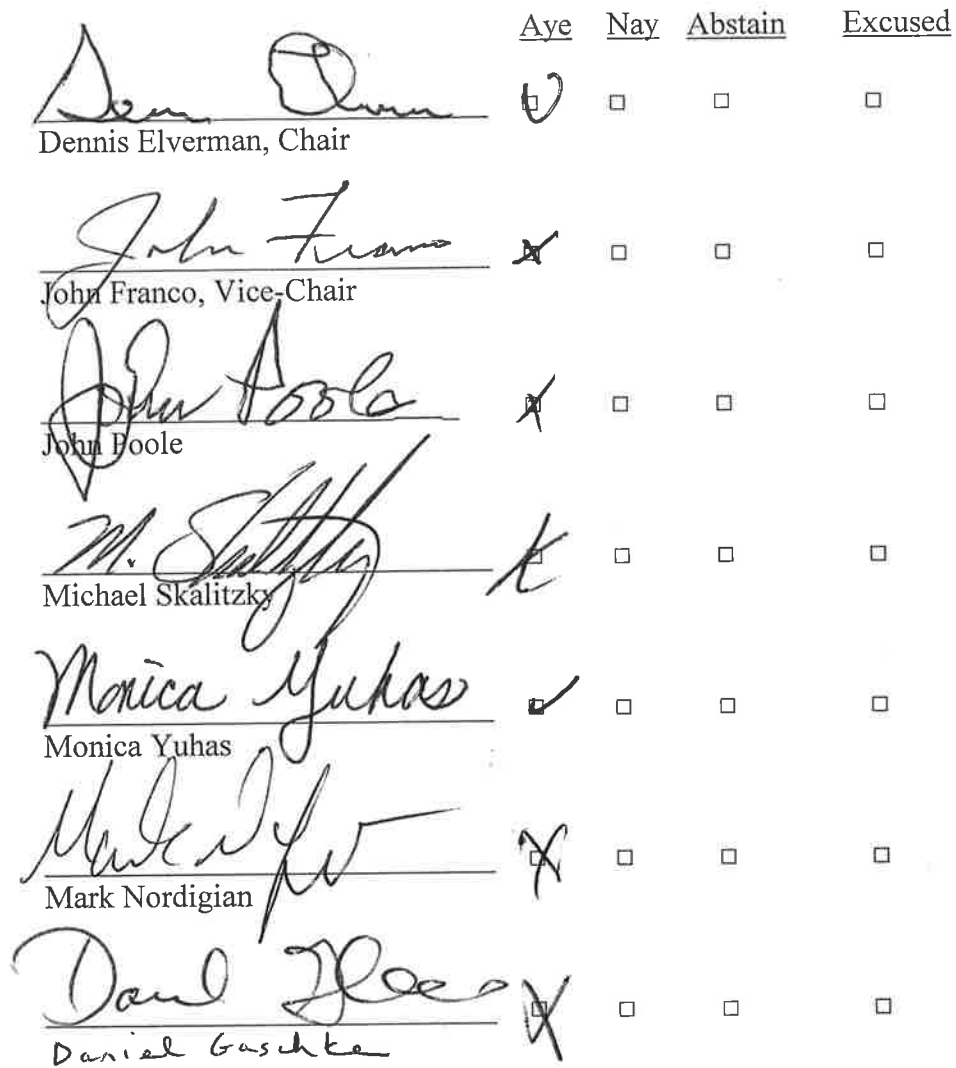 Aye Nay Abstain Excused
Dennis Elverman, Chair
John Franco
John Franco, Vice-Chair
John Poole
John Poole
M. Skalitzky
Michael Skalitzky
Monica Yuhas
Monica Yuhas
Mark
Mark Nordigian
Daniel Gaschke